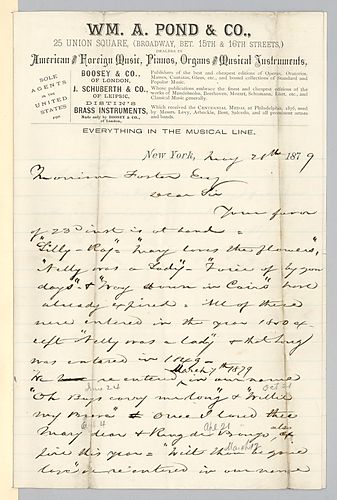 WM. A. POND & CO.,
25 UNION SQUARE, (BROADWAY, BET. 15TH & 16TH STREETS,)
DEALERS IN
American and Foreign Music, Pianos, Organs and Musical Instruments,
SOLE
AGENTS
IN THE
UNITED
STATES
FOR
BOOSEY & CO.,
OF LONDON,
Publishers of the best and cheapest editions of Operas, Oratorios,
Masses, Cantatas, Glees, etc., and bound collections of Standard and
Popular Music.
J. SCHUBERTH & CO.
OF LEIPSIC,
Whose publications embrace the finest and cheapest editions of the
works of Mendelssohn, Beethoven, Mozart, Schumann, Liszt, etc., and
Classical Music generally.
DISTIN'S
BRASS INSTRUMENTS,
Made only by BOOSEY & CO.,
of London,
Which received the CENTENNIAL MEDAL at Philadelphia, 1876, used
by Messrs. Levy, Arbuckle, Bent, Salcedo, and all prominent artists
and bands.
EVERYTHING IN THE MUSICAL LINE.
New York, May 26th 1879
Morrison Foster Esq
Dear Sir
Your favor
of 23d inst is at hand =
"Lilly-Ray" = "Mary loves the flowers",
"Nelly was a Lady" - "Voice of by gone
days" & "Way down in Cairo" have
already expired = All of these
were entered in the year 1850 ex-
cept "Nelly was a Lady" & that
was entered in 1849 =
March 7th 1879
We re-entered in our name
Jun 24
Oct 21
"Oh Boys carry me long" & "Willie
my Brave" & "Once I loved thee
Apl 21
also
Mary dear" & Ring de Banjo,
March 17
live this year = "Wilt thou be gone
love" re-entered in our name